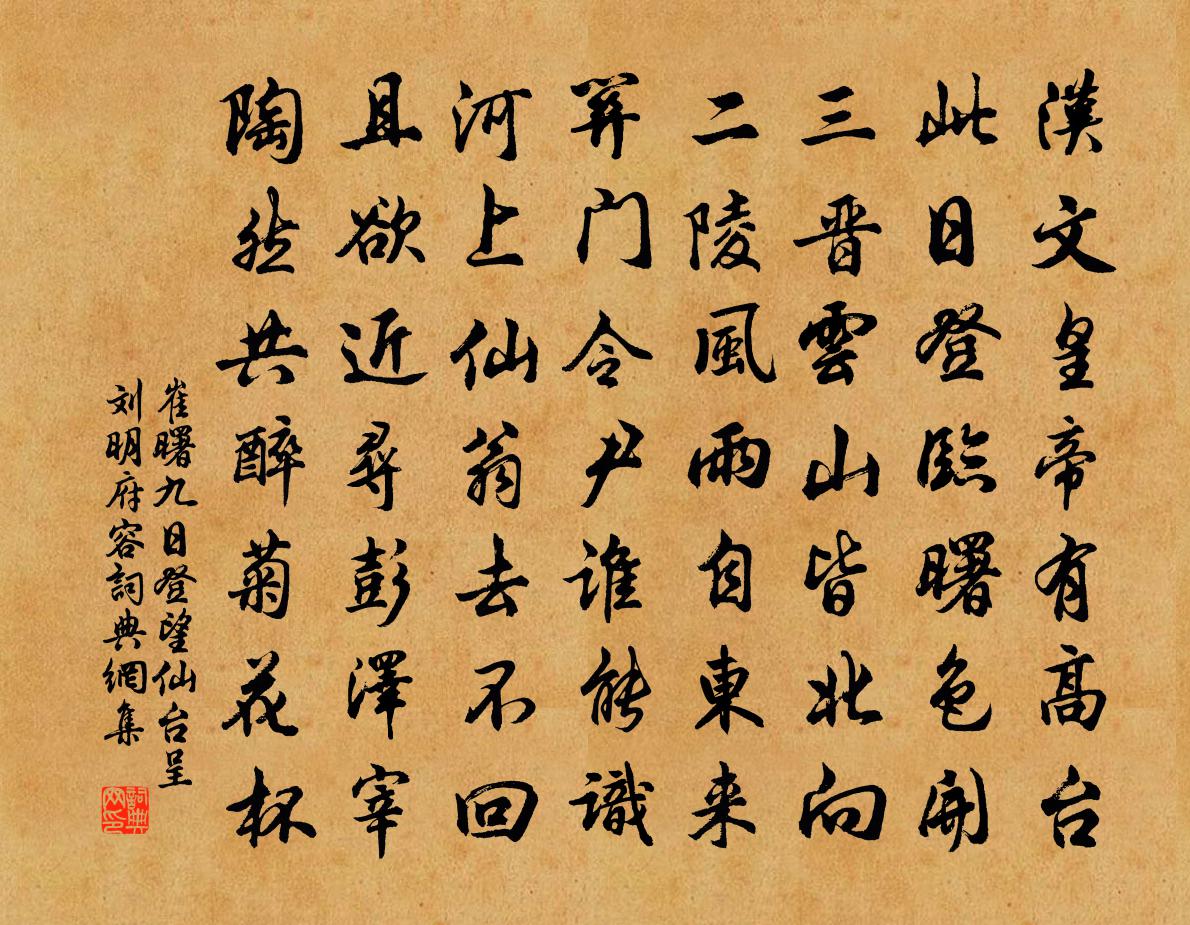 漢文皇帝有高台
此日登臨曙色開
三晉雲山皆北向
二陵風雨自東来
關門令尹誰能識
河上仙翁去不回
且欲近尋彭澤宰
陶然共醉菊花杯
崔曙九日登望仙台呈
刘明府容詞典網集
詞典网印